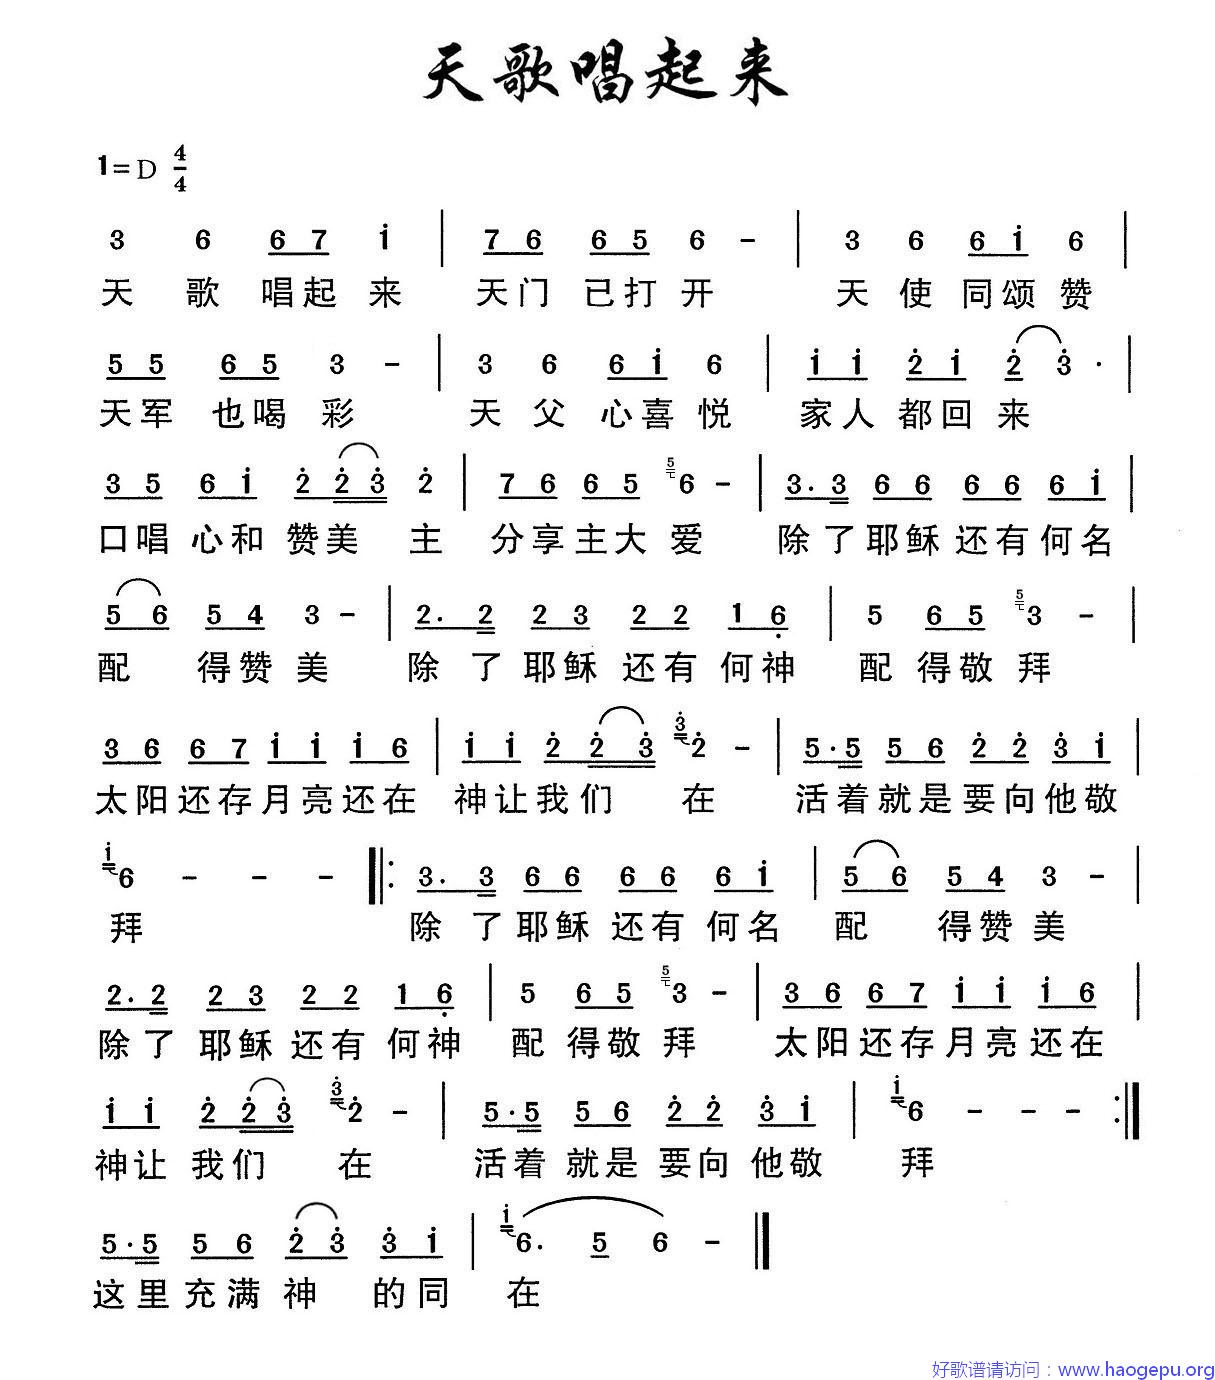 天歌唱起来
1=D 4/4
3 6 6 7 i | 7 6 6 5 6 - | 3 6 6 i 6 |
天 歌 唱起 来 天门 已打 开 天 使 同颂 赞
5 5 6 5 3 - | 3 6 6 i 6 | i i 2̇ i 2̇ 3̇ · |
天军 也喝 彩 天 父 心喜 悦 家人 都回 来
3 5 6 i 2̇ 2̇ 3̇ 2̇ | 7 6 6 5 5 6 - | 3. 3 6 6 6 6 6 i |
口唱 心和 赞美 主 分享 主大 爱 除了 耶稣 还有 何名
5 6 5 4 3 - | 2. 2 2 3 2 2 1 6̣ | 5 6 5 5 3 - |
配 得赞 美 除了 耶稣 还有 何神 配 得敬 拜
3 6 6 7 i i i 6 | i i 2̇ 2̇ 3̇ 3̇ 2̇ - | 5·5 5 6 2̇ 2̇ 3̇ i |
太阳 还存 月亮 还在 神让 我们 在 活着 就是 要向 他敬
i 6 - - - ‖: 3. 3 6 6 6 6 6 i | 5 6 5 4 3 - |
拜 除了 耶稣 还有 何名 配 得赞 美
2. 2 2 3 2 2 1 6̣ | 5 6 5 5 3 - | 3 6 6 7 i i i 6 |
除了 耶稣 还有 何神 配 得敬 拜 太阳 还存 月亮 还在
i i 2̇ 2̇ 3̇ 3̇ 2̇ - | 5·5 5 6 2̇ 2̇ 3̇ i | i 6 - - - :‖
神让 我们 在 活着 就是 要向 他敬 拜
5·5 5 6 2̇ 3̇ 3̇ i | i 6. 5 6 - ‖
这里 充满 神 的同 在
好歌谱请访问：www.haogepu.org